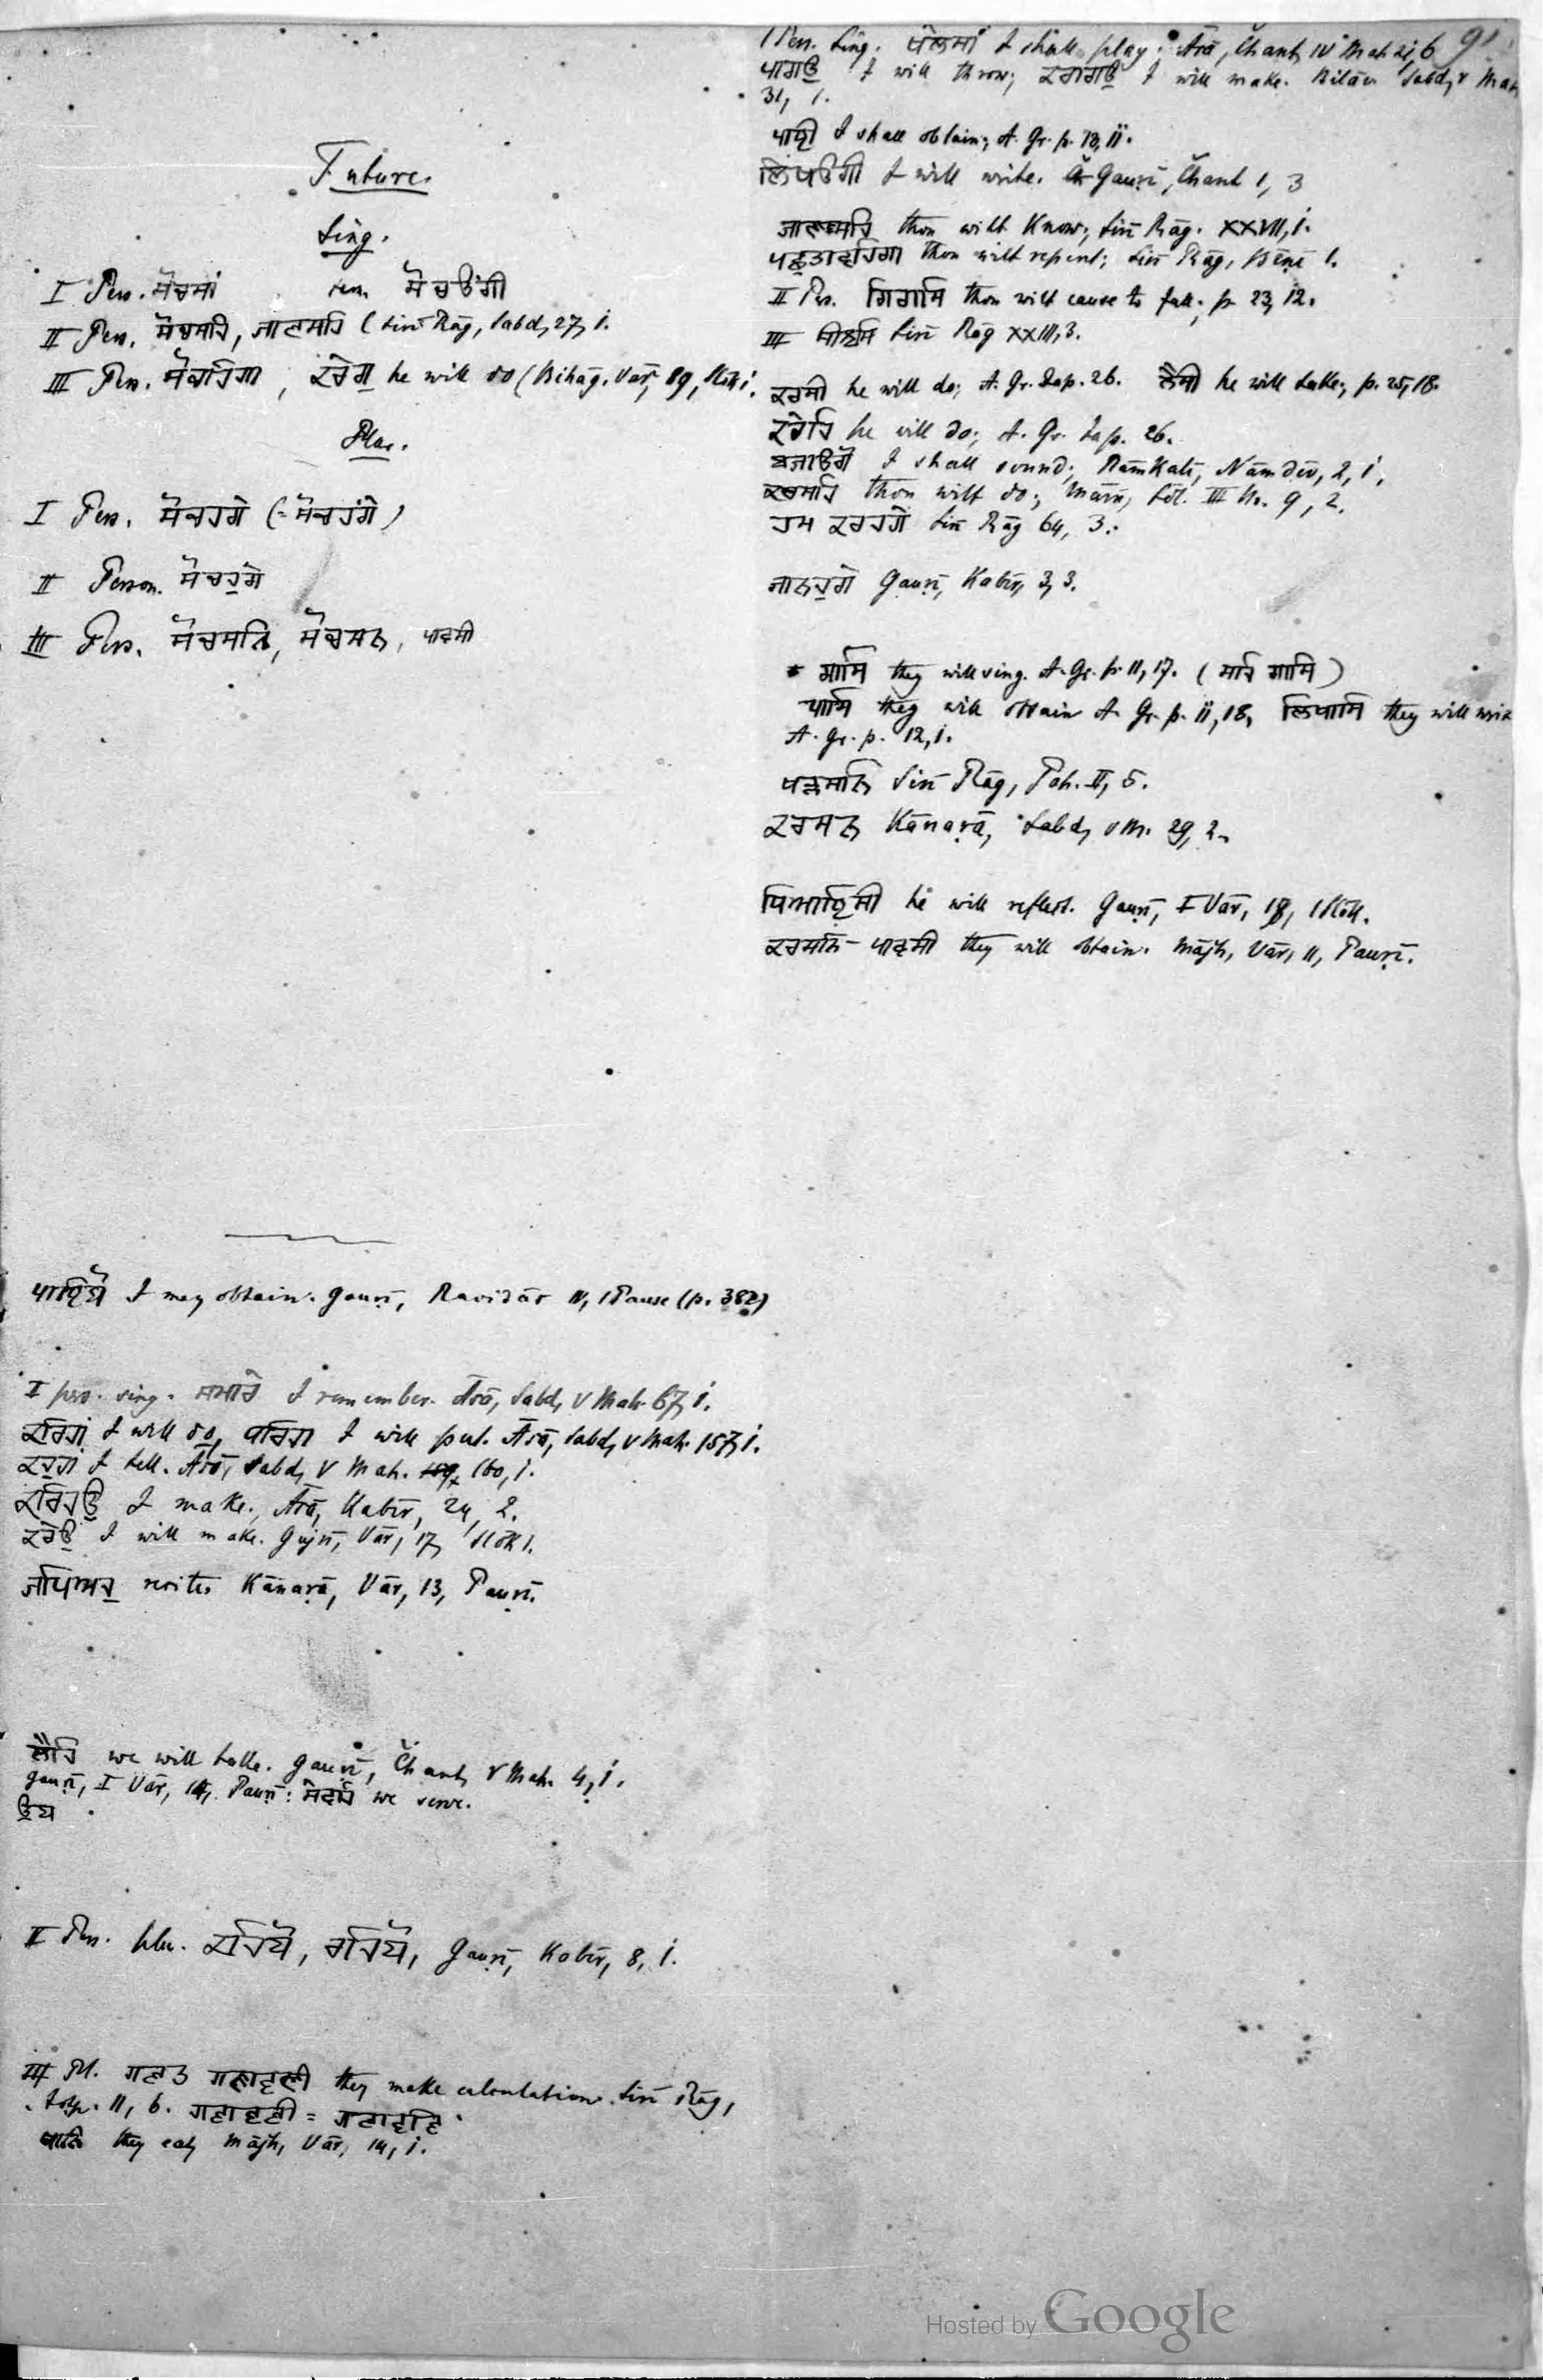 91
Future.
Sing.
I Pers. ਸੋਚਸਾਂ fem. ਸੋਚਉਂਗੀ
II Pers. ਸੋਚਸਹਿ, ਜਾਣਸਹਿ (Sirī Rāg, Sabd, 27, 1.
III Pers. ਸੋਚਹਿਗਾ, ਕਰੇਗੁ he will do (Bihāg. Vār,
Plur.
I Pers. ਸੋਚਹਗੇ (= ਸੋਚਹਂਗੇ)
II Person. ਸੋਚਹੁਗੇ
III Pers. ਸੋਚਸਨਿ, ਸੋਚਸਨ, ਪਾਵਸੀ
I may obtain. Gauṛī, Ravidās IV, 1 Pause (p. 382)
I pers. sing. ਸਮਾਰੇ I remember. Āsā, Sabd, V Mah. 67, 1.
I will do, I will put. Āsā, Sabd, V Mah. 157, 1.
I tell. Āsā, Sabd, V Mah. 160, 1.
ਕਰਿਹਉ I make. Āsā, Kabīr, 24, 2.
ਕਰੇਉ I will make. Gujrī, Vār, 17, Slōk 1.
ਜਪਿਅਹੁ recite. Kānaṛā, Vār, 13, Pauṛī.
ਲੈਹਿ we will take. Gauṛī, Čhant, V Mah. 4, 1.
Gauṛī, I Vār, 14, Pauṛī: ਸੇਵਹਿ we serve.
II Pers. plu. ਕਹਿਯੋ, ਰਹਿਯੋ, Gauṛī, Kabīr, 8, 1.
III Pl. ਗਣਤ ਗਣਾਵਣੀ they make calculation. Sirī Rāg,
11, 6. ਗਣਾਵਣੀ = ਗਣਾਵਣਿ
ਖਾਨਿ they eat, Mājh, Vār, 14, 1.
1 Pers. Sing. ਖੇਲਸਾਂ I shall play; Āsā, Čhant, IV Mah. 21, 6
ਪਾਗਉ I will throw; ਕਰਾਗਉ I will make. Bilāv. Sabd, V Mah
31, 1.
I shall obtain; A. Gr. p. 13, 11.
I will write. Gauṛī, Čhant 1, 3
ਜਾਣਸਹਿ thou wilt know; Sirī Rāg. XXVII, 1.
ਪਛੁਤਾਵਹਿਗਾ thou wilt repent; Sirī Rāg, Bēṇī 1.
II Ps. ਗਿਰਾਸਿ thou wilt cause to fall; p. 23, 12.
III Sirī Rāg XXIII, 3.
ਕਰਸੀ he will do; A. Gr. Jap. 26. ਲੈਸੀ he will take; p. 25, 18.
ਕਰੇਹਿ he will do; A. Gr. Jap. 26.
ਬਜਾਉਗੋ I shall sound; Rāmkalī, Nāmdēv, 2, 1.
ਕਰਸਹਿ thou wilt do; Mārū, Sōl. III No. 9, 2.
ਹਮ ਕਰਹਗੇ Sirī Rāg 64, 3.
ਜਾਨਹੁਗੇ Gauṛī, Kabīr, 3, 3.
ਗਾਸਿ they will sing. A. Gr. p. 11, 17. (ਸਹਿ ਗਾਸਿ)
ਪਾਸਿ they will obtain A. Gr. p. 11, 18, ਲਿਖਾਸਿ they will
A. Gr. p. 12, 1.
Sirī Rāg, Pah. II, 5.
ਕਰਸਨ Kānaṛā, Sabd, V M. 29, 2.
he will reflect. Gauṛī, I Vār, 18, 1 Slōk.
ਕਰਸਨਿ - ਪਾਵਸੀ they will obtain. Mājh, Vār, 11, Pauṛī.
Hosted by Google